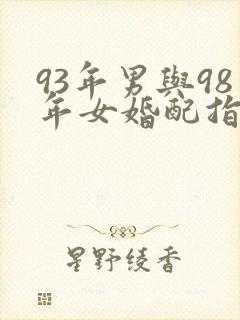 93年男與98
年女婚配指
星野绫香